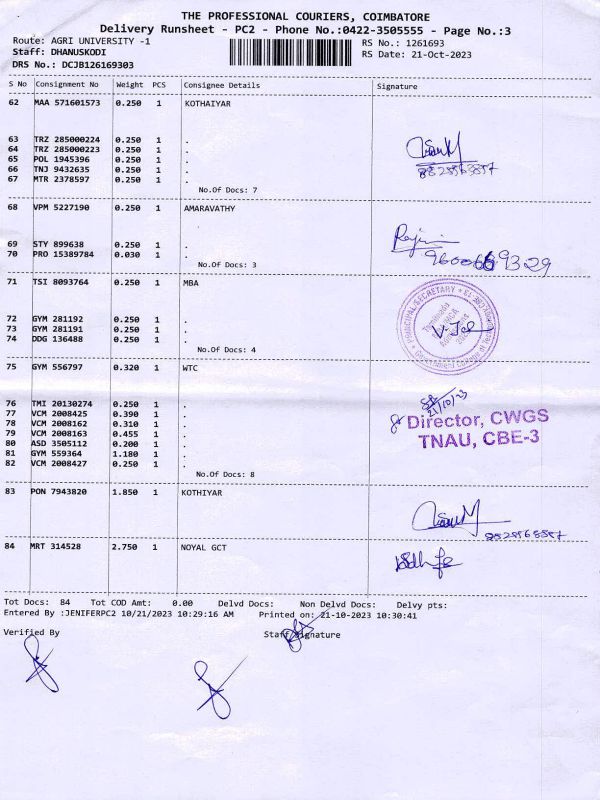 THE PROFESSIONAL COURIERS, COIMBATORE
Delivery Runsheet - PC2 - Phone No.:0422-3505555 - Page No.:3
Route: AGRI UNIVERSITY -1
RS No.: 1261693
Staff: DHANUSKODI
RS Date: 21-Oct-2023
DRS No.: DCJB126169303
S No Consignment No Weight PCS Consignee Details Signature
62 MAA 571601573 0.250 1 KOTHAIYAR
63 TRZ 285000224 0.250 1 .
64 TRZ 285000223 0.250 1 .
65 POL 1945396 0.250 1 .
66 TNJ 9432635 0.250 1 .
67 MTR 2378597 0.250 1 .
No.Of Docs: 7
68 VPM 5227190 0.250 1 AMARAVATHY
69 STY 899638 0.250 1 .
70 PRO 15389784 0.030 1 .
No.Of Docs: 3
71 TSI 8093764 0.250 1 MBA
PRINCIPAL/SECRETARY
72 GYM 281192 0.250 1 .
73 GYM 281191 0.250 1 .
74 DDG 136488 0.250 1 .
No.Of Docs: 4
75 GYM 556797 0.320 1 WTC
76 TMI 20130274 0.250 1 .
21/10/23
77 VCM 2008425 0.390 1 .
78 VCM 2008162 0.310 1 .
Director, CWGS
79 VCM 2008163 0.455 1 .
TNAU, CBE-3
80 ASD 3505112 0.200 1 .
81 GYM 559364 1.180 1 .
82 VCM 2008427 0.250 1 .
No.Of Docs: 8
83 PON 7943820 1.850 1 KOTHIYAR
84 MRT 314528 2.750 1 NOYAL GCT
Tot Docs: 84 Tot COD Amt: 0.00 Delvd Docs: Non Delvd Docs: Delvy pts:
Entered By :JENIFERPC2 10/21/2023 10:29:16 AM Printed on: 21-10-2023 10:30:41
Verified By
Staff Signature